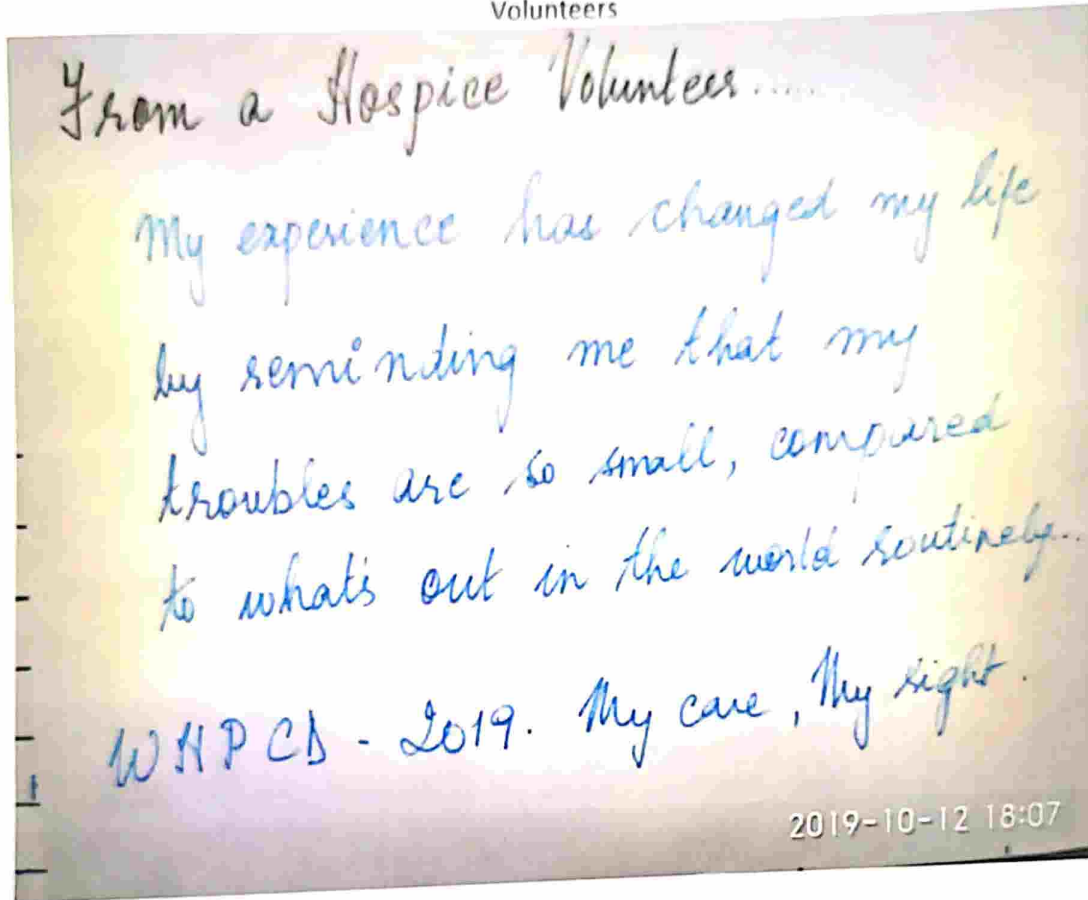 Volunteers
From a Hospice Volunteer.....
My experience has changed my life
by reminding me that my
troubles are so small, compared
to what's out in the world routinely..
WHPCD - 2019. My care, My right.
2019-10-12 18:07